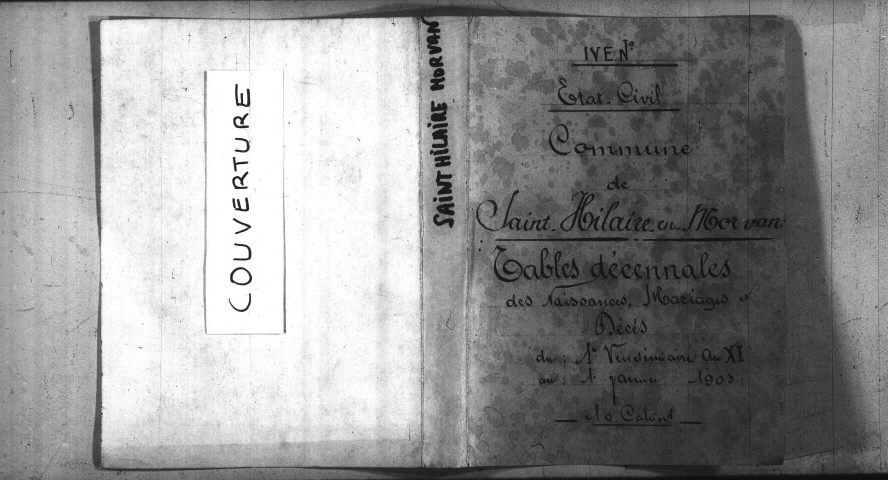 COUVERTURE
SAINT HILAIRE MORVAN
IVE N°
Etat-Civil
Commune
de
Saint-Hilaire-en-Morvan
Tables décennales
des Naissances, Mariages et
Décés
du : 1er Vendémiaire An XI
au : 1er Janvier 1903
— 10 Cahiers —